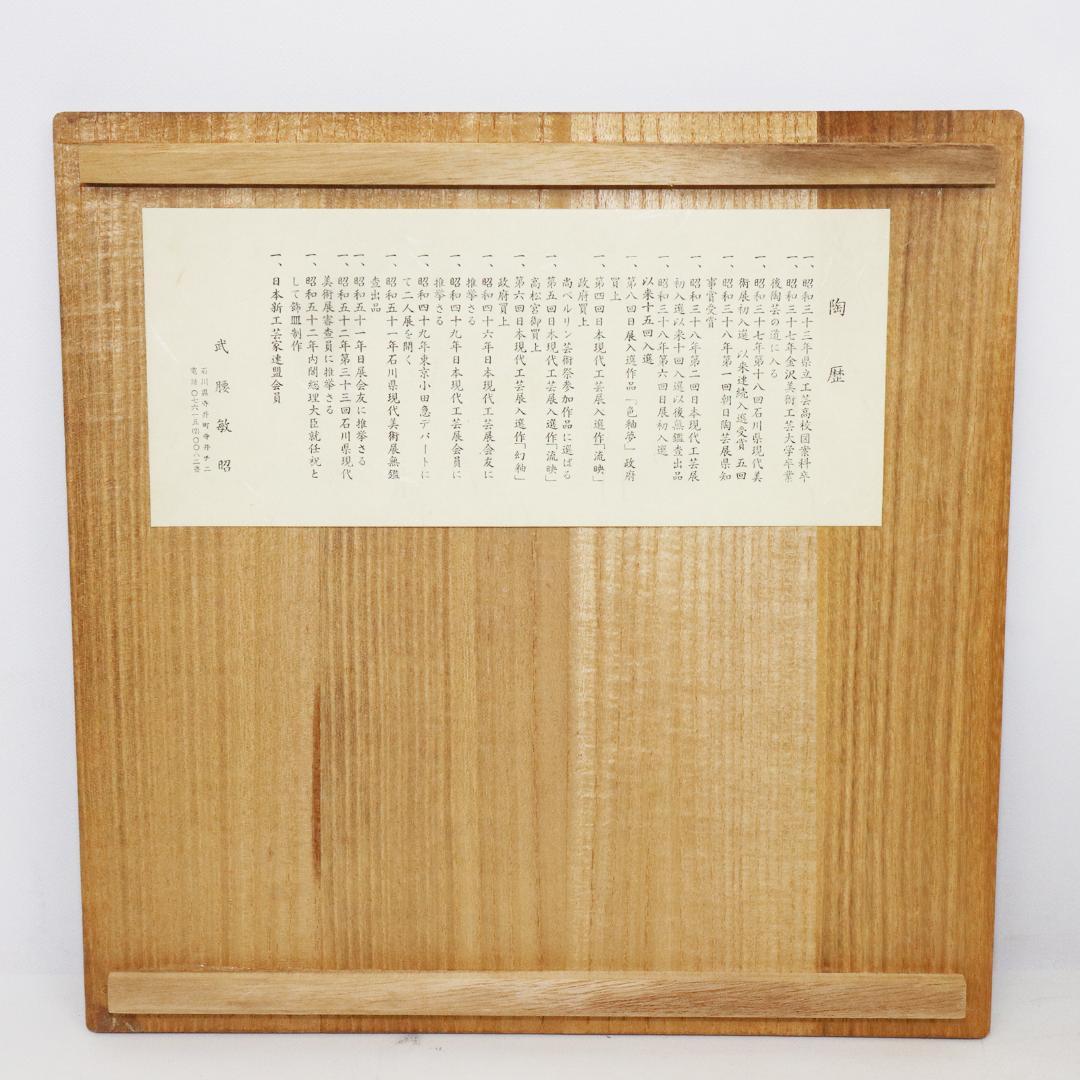 陶歴
一、昭和三十三年県立工芸高校図案科卒
一、昭和三十七年金沢美術工芸大学卒業
後陶芸の道に入る
一、昭和三十七年第十八回石川県現代美
術展初入選 以来連続入選受賞五回
一、昭和三十八年第一回朝日陶芸展県知
事賞受賞
一、昭和三十八年第二回日本現代工芸展
初入選以来十回入選以後無鑑査出品
一、昭和三十八年第六回日展初入選
以来十五回入選
一、第八回日展入選作品「色釉夢」政府
買上
一、第四回日本現代工芸展入選作「流映」
政府買上
尚ベルリン芸術祭参加作品に選ばる
一、第五回日本現代工芸展入選作「流映」
高松宮御買上
一、第六回日本現代工芸展入選作「幻釉」
政府買上
一、昭和四十六年日本現代工芸展会友に
推挙さる
一、昭和四十九年日本現代工芸展会員に
推挙さる
一、昭和四十九年東京小田急デパートに
て二人展を開く
一、昭和五十一年石川県現代美術展無鑑
査出品
一、昭和五十一年日展会友に推挙さる
一、昭和五十二年第三十三回石川県現代
美術展審査員に推挙さる
一、昭和五十二年内閣総理大臣就任祝と
して飾皿制作
一、日本新工芸家連盟会員
武腰敏昭
石川県寺井町寺井チ二
電話〇七六一五